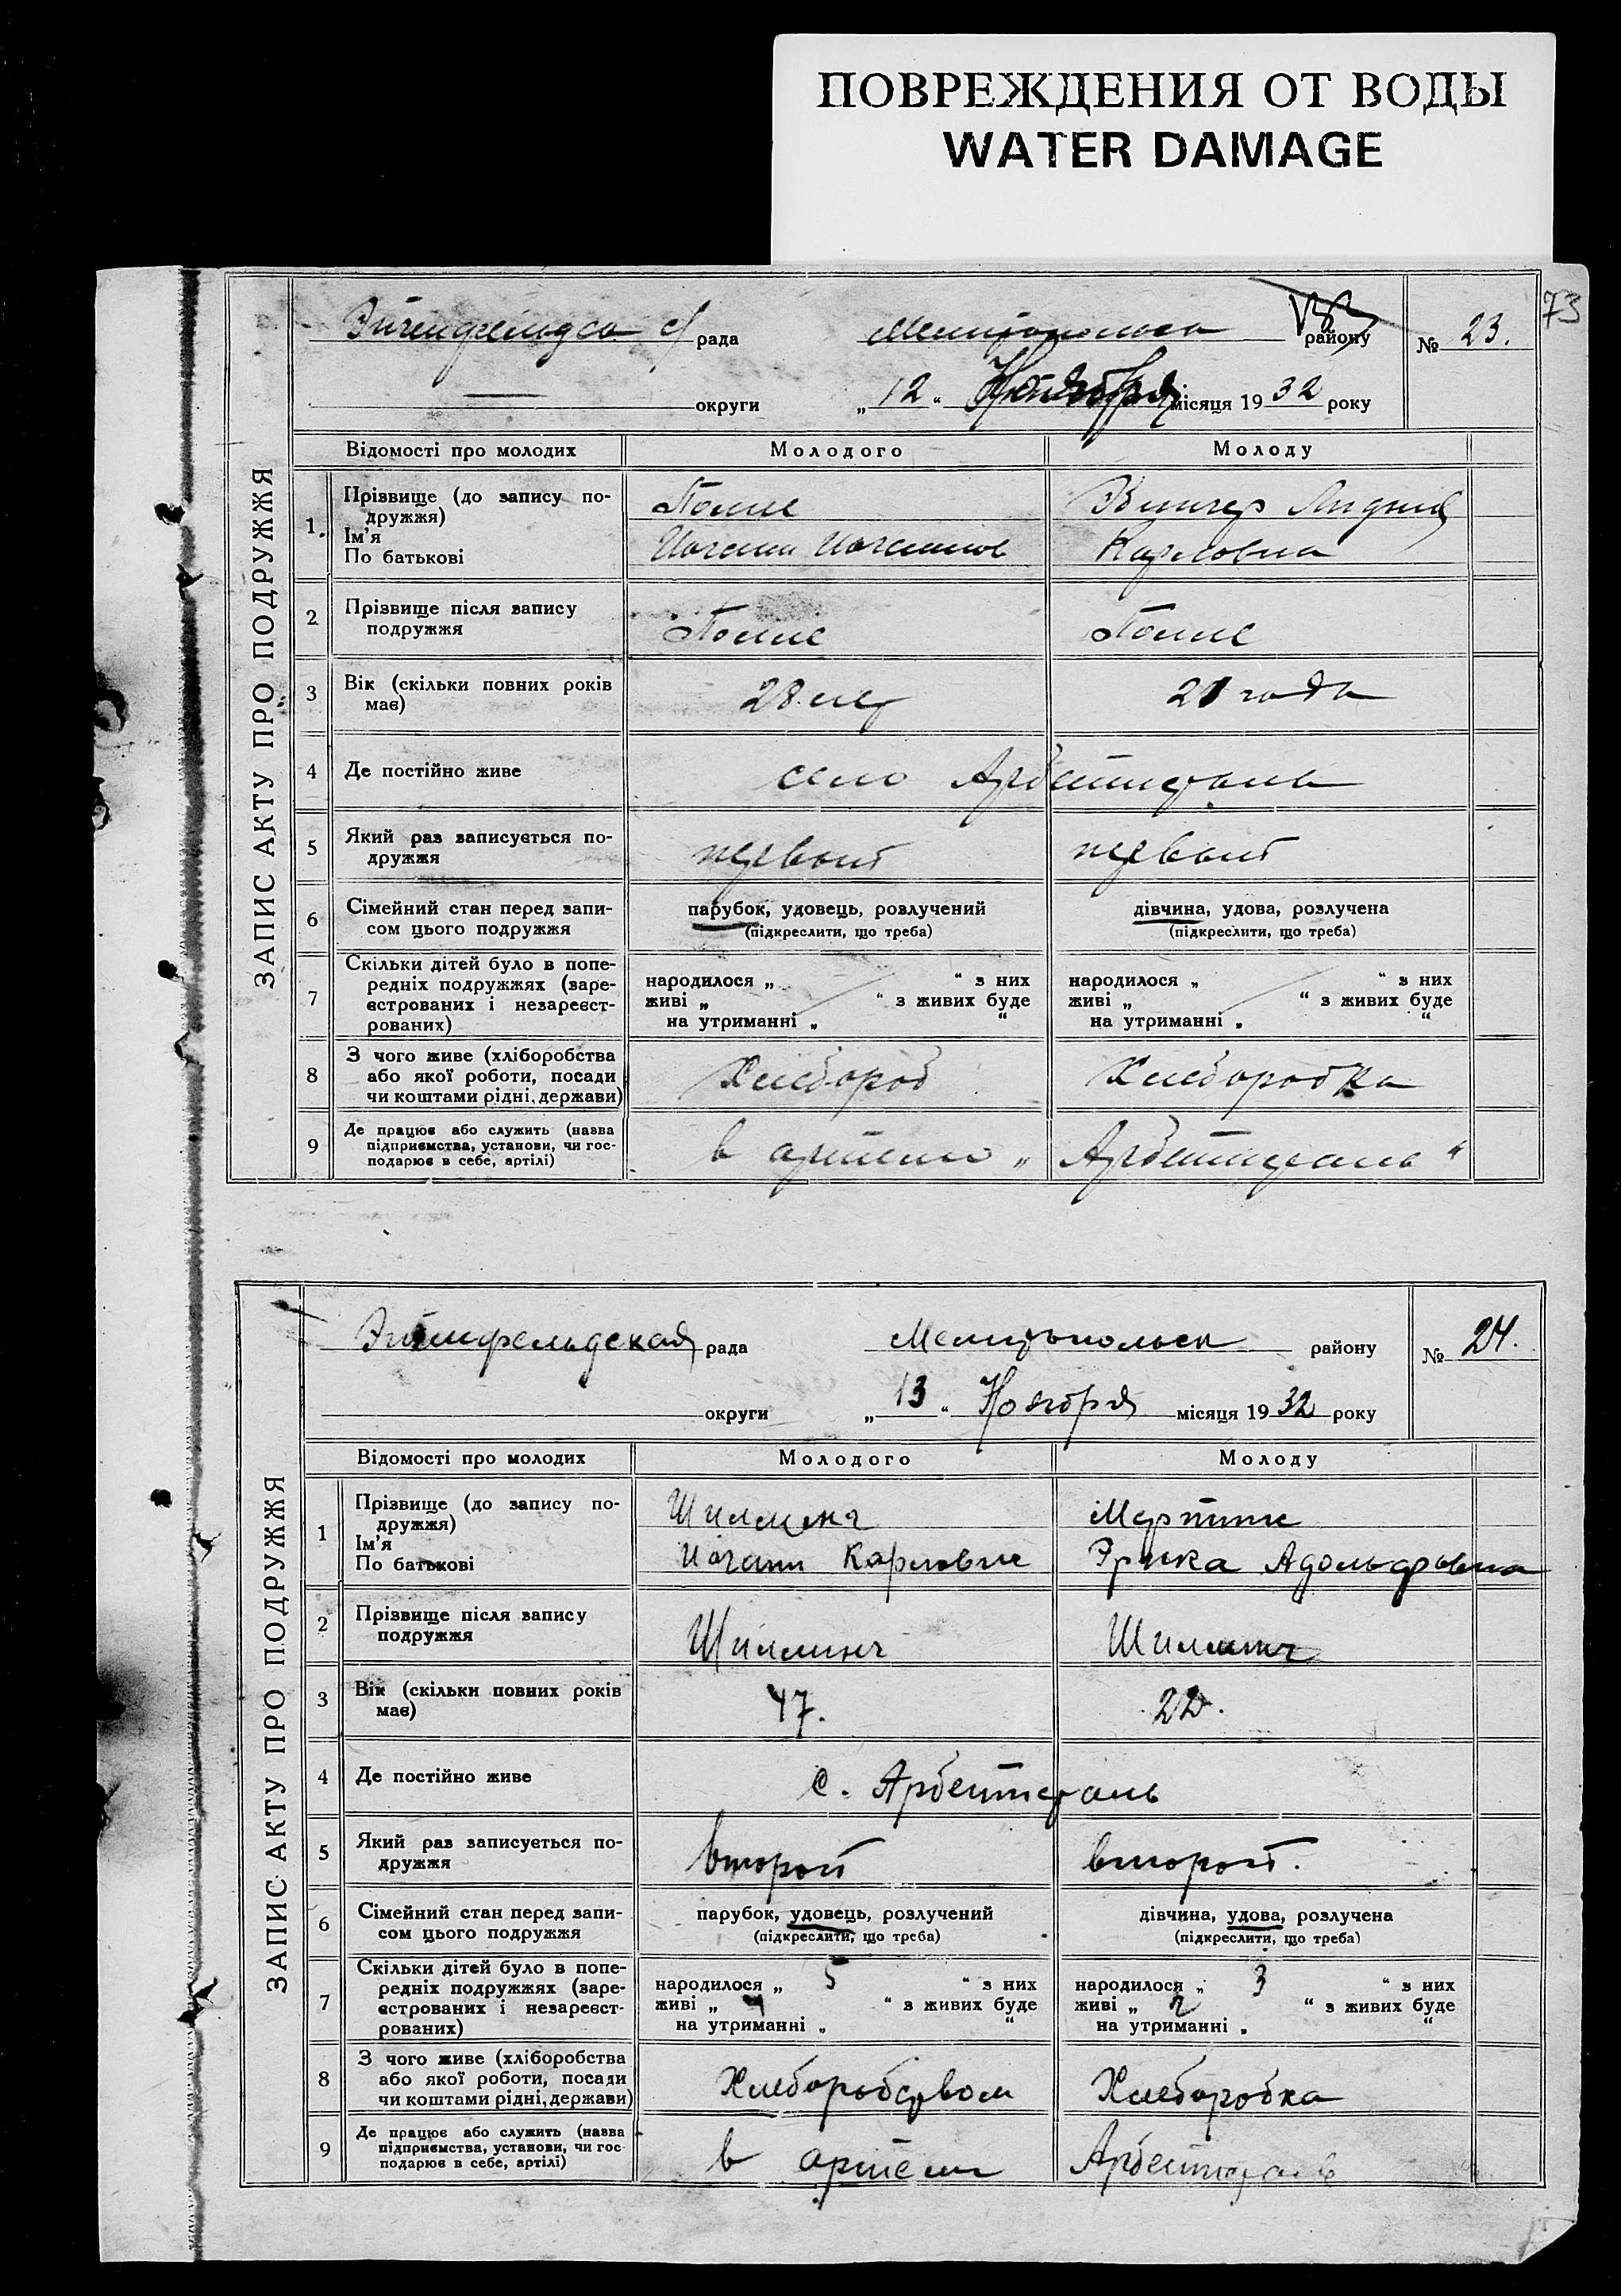 ПОВРЕЖДЕНИЯ ОТ ВОДЫ
WATER DAMAGE
73
ЗАПИС АКТУ ПРО ПОДРУЖЖЯ
рада Мелитопольск району № 23.
округи „ 12 “ Ноября місяця 19 32 року
Відомості про молодих Молодого Молоду
1. Прізвище (до запису по-
дружжя)
Ім'я
По батькові
Лидия
Карловна
2 Прізвище після запису
подружжя
3 Вік (скільки повних років
має)
28 лет 21 года
4 Де постійно живе село Арбейтсталь
5 Який раз записується по-
дружжя
первый первый
6 Сімейний стан перед запи-
сом цього подружжя
парубок, удовець, розлучений
(підкреслити, що треба)
дівчина, удова, розлучена
(підкреслити, що треба)
7 Скільки дітей було в попе-
редніх подружжях (заре-
єстрованих і незареєст-
рованих)
народилося „ “ з них
живі „ “ з живих буде
на утриманні „ “
народилося „ “ з них
живі „ “ з живих буде
на утриманні „ “
8 З чого живе (хліборобства
або якої роботи, посади
чи коштами рідні, держави)
Хлебороб Хлеборобка
9 Де працює або служить (назва
підприємства, установи, чи гос-
подарює в себе, артілі)
в артели „ Арбейтсталь “
ЗАПИС АКТУ ПРО ПОДРУЖЖЯ
Эйгенфельдская рада Мелитопольск району № 24.
округи „ 13 “ Ноября місяця 19 32 року
Відомості про молодих Молодого Молоду
1 Прізвище (до запису по-
дружжя)
Ім'я
По батькові
Шиллинг Мартин
Иоганн Карлович Эрика Адольфовна
2 Прізвище після запису
подружжя
Шиллинг Шиллинг
3 Вік (скільки повних років
має)
47. 22.
4 Де постійно живе с. Арбейтсталь
5 Який раз записується по-
дружжя
второй второй.
6 Сімейний стан перед запи-
сом цього подружжя
парубок, удовець, розлучений
(підкреслити, що треба)
дівчина, удова, розлучена
(підкреслити, що треба)
7 Скільки дітей було в попе-
редніх подружжях (заре-
єстрованих і незареєст-
рованих)
народилося „ 5 “ з них
живі „ 4 “ з живих буде
на утриманні „ “
народилося „ 3 “ з них
живі „ 2 “ з живих буде
на утриманні „ “
8 З чого живе (хліборобства
або якої роботи, посади
чи коштами рідні, держави)
Хлеборобством Хлеборобка
9 Де працює або служить (назва
підприємства, установи, чи гос-
подарює в себе, артілі)
в артели Арбейтсталь